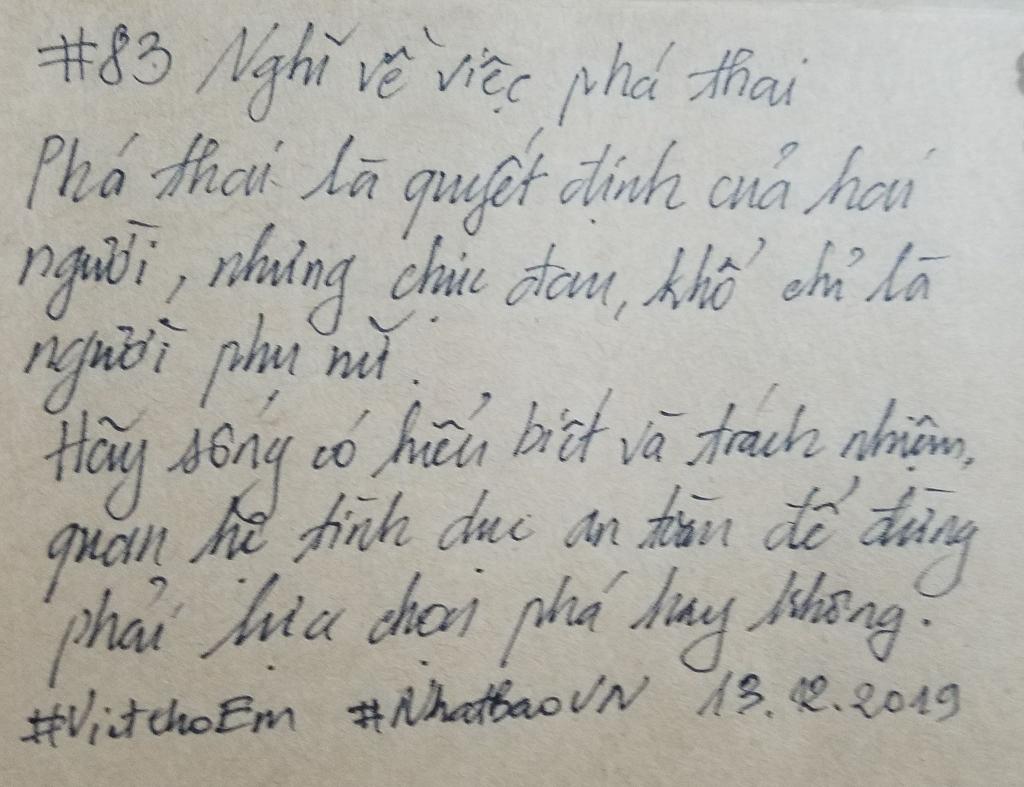 #83 Nghĩ về việc phá thai
Phá thai là quyết định của hai
người, nhưng chịu đau, khổ chỉ là
người phụ nữ.
Hãy sống có hiểu biết và trách nhiệm,
quan hệ tình dục an toàn để đừng
phải lựa chọn phá hay không.
#ViếtchoEm #NhatbaoVN 13.12.2019